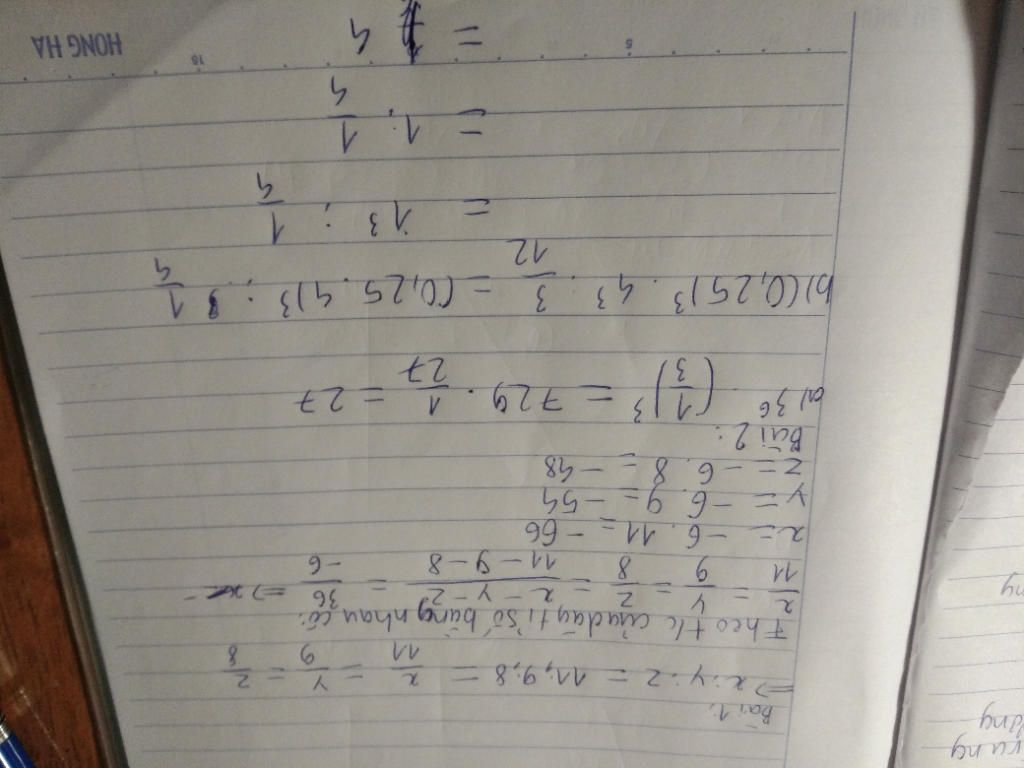 Bài 1:
=> x:y:z = 11:9:8 = x/11 = y/9 = z/8
Theo t/c của dãy tỉ số bằng nhau có:
x/11 = y/9 = z/8 = x-y-z/11-9-8 = 36/-6 =>
x = -6.11 = -66
y = -6.9 = -54
z = -6.8 = -48
Bài 2:
a) 3^6 . (1/3)^3 = 729 . 1/27 = 27
b) (0,25)^3 . 4^3 : 3/12 = (0,25 . 4)^3 : 1/4
= 1^3 : 1/4
= 1 : 1/4
= 4
5 18
HONG HA